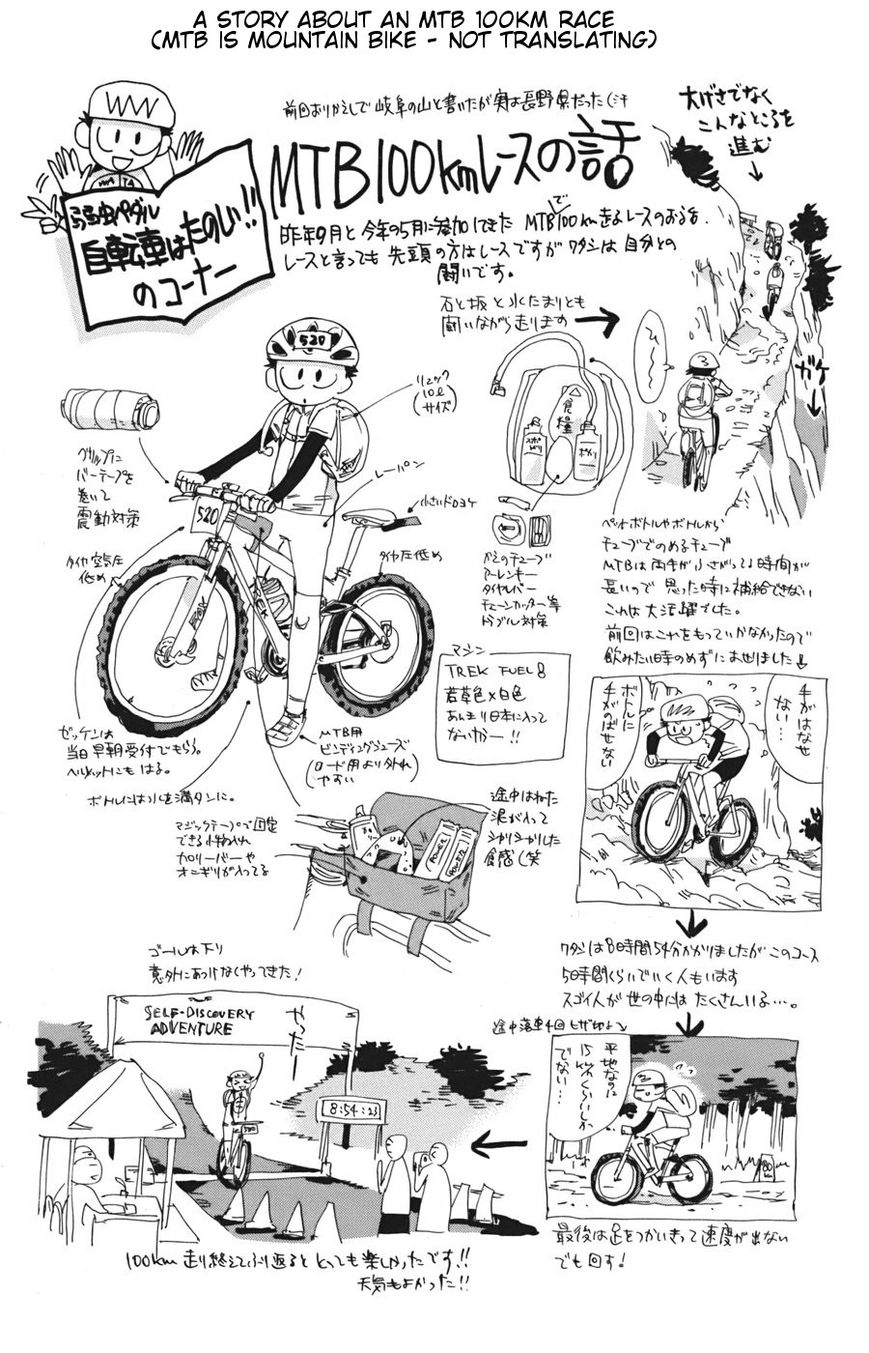 A STORY ABOUT AN MTB 100KM RACE
(MTB IS MOUNTAIN BIKE - NOT TRANSLATING)
前回おりかえしで岐阜の山と書いたが実は長野県だった
大げさでなく
こんなところを
進む
MTB100kmレースの話
弱虫ペダル
自転車はたのしい!!
のコーナー
昨年9月と今年の5月に参加してきた MTBで100km走るレースのおはなし
レースと言っても先頭の方はレースですがワタシは自分との
闘いです。
石と坂と水たまりとも
闘いながら走ります
ひー
ガケ
520
リュック
10ℓ
サイズ
食糧
スポドリ
レーパン
小さいドロヨケ
グリップに
バーテープを
巻いて
震動対策
520
タイヤ空気圧
低め
タイヤ圧低め
かえのチューブ
アーレンキー
タイヤレバー
チェーンカッター等
トラブル対策
ペットボトルやボトルから
チューブでのめるチューブ
MTBは両手がふさがってる時間が
長いので思った時に補給できない
これは大活躍でした。
前回はこれをもっていかなかったので
飲みたい時のめずにあせりました
マシン
TREK FUEL 8
若草色×白色
あんまり日本に入って
ないかー!!
ゼッケンは
当日早朝受付でもらう。
ヘルメットにもはる。
MTB用
ビンディングシューズ
(ロード用より外れ
やすい)
ボトルには水を満タンに。
マジックテープで固定
できる小物入れ
カロリーバーや
オニギリが入ってる
POWER
途中はねた
泥が入って
シャリシャリした
食感(笑
手がはなせ
ない…
ボトルに
手がのばせない
ワタシは8時間54分かかりましたがこのコース
5時間くらいでいく人もいます
スゴイ人が世の中にはたくさんいる…。
途中落車4回
平地なのに
15kmくらいしか
でない…
80
最後は足をつかいきって速度が出ない
でも回す!
ゴールは下り
意外にあっけなくやってきた!
SELF-DISCOVERY
ADVENTURE
やったー
8:54:23
520
100km走り終えてふり返るととっても楽しかったです!!
天気もよかった!!